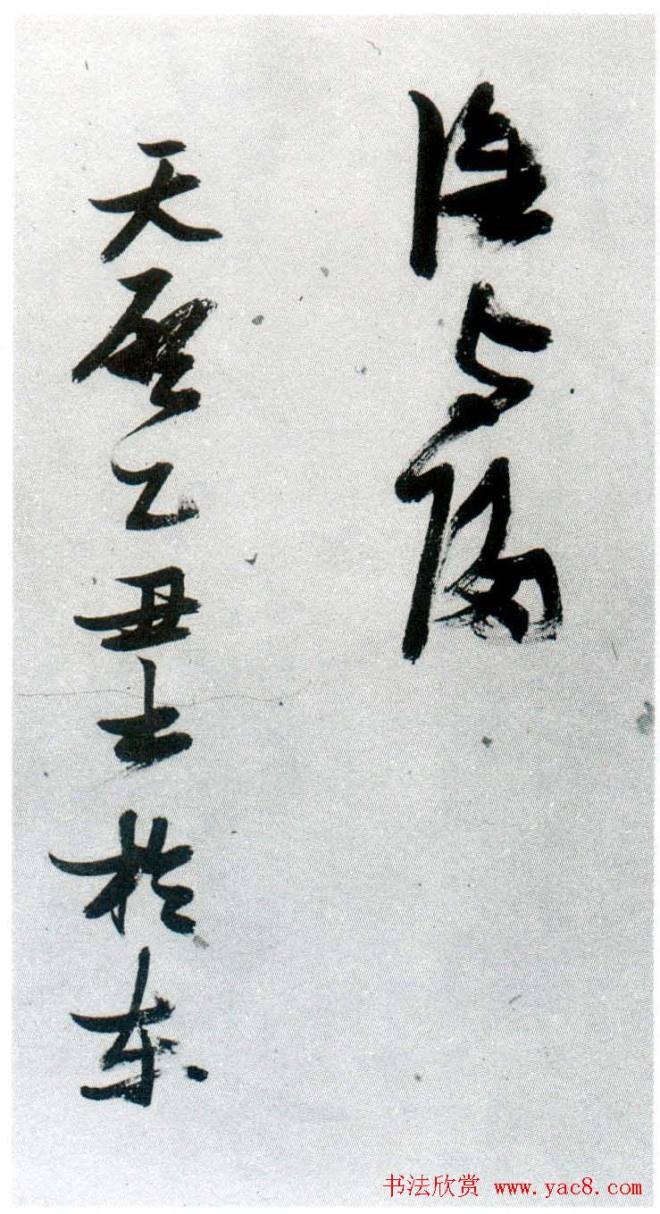 陰与陽
天啓乙丑 於東
书法欣赏 www.yac8.com